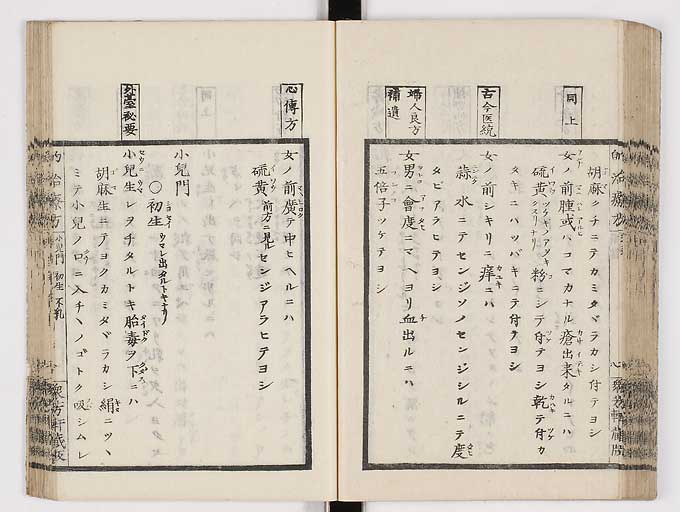 同上
古今医統
婦人良方
補遺
胡麻クチニテカミタヾラカシ付テヨシ
女ノ前腫或ハコマカナル瘡出来タルニハ
硫黄 粉ニシテ付テヨシ乾テ付カ
タキニハツバキニテ付テヨシ
女ノ前シキリニ痒ニハ
蒜 水ニテセンジソノセンジシルニテ度
タビアラヒテヨシ
女男ニ會度ニマヘヨリ血出ルニハ
五倍子ツケテヨシ
心傳方
外臺秘要
女ノ前廣テ中ヒヘルニハ
硫黄 前方ニ見ル センジアラヒテヨシ
小兒門
〇初生 ウマレ出タルトキナリ
小兒生レヲチタルトキ胎毒ヲ下ニハ
胡麻生ニテヨクカミタヾラカシ絹ニツヽ
ミテ小兒ノ口ニ入チヽノゴトク吸シムレ
小兒門 初生 不乳